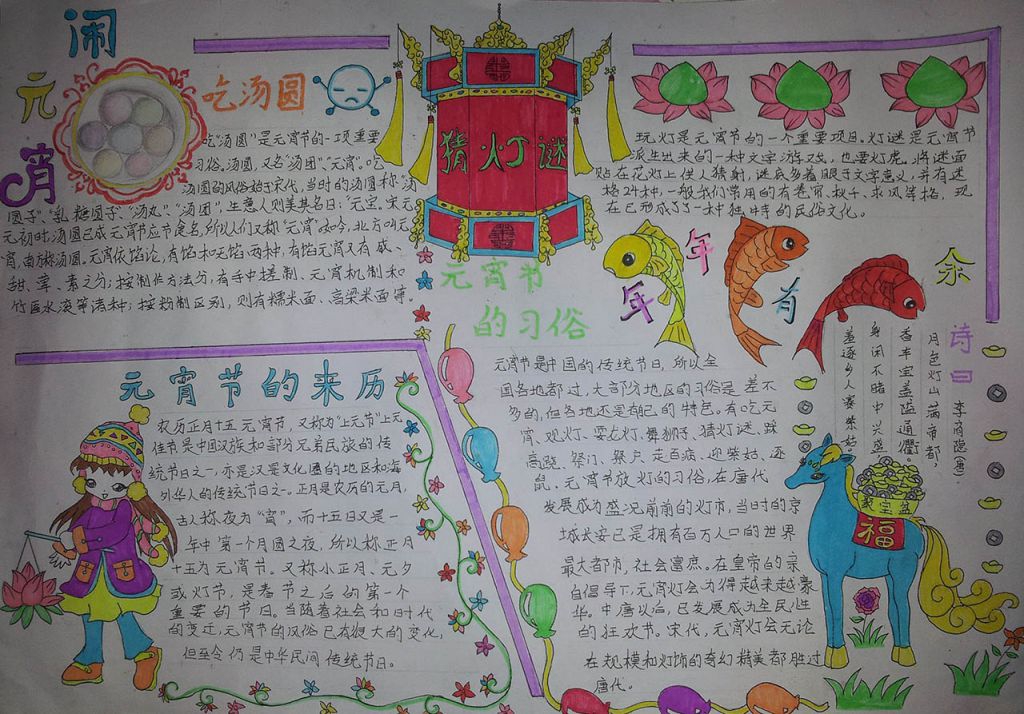 闹
元
宵
吃汤圆
吃"汤圆"是元宵节的一项重要
习俗。汤圆,又名"汤团""元宵"。吃
汤圆的风俗始于宋代,当时的汤圆称"汤
圆子""乳糖圆子""汤丸""汤团",生意人则美其名曰:"元宝。宋元
元初时,汤圆已成元宵节应节食品,所以人们又称"元宵"如今,北方叫元
宵,南方称汤圆。元宵依馅论,有馅和无馅两种,有馅元宵又有咸、
甜、荤、素之分;按制作方法分,有手中搓制、元宵机制和
竹匾水滚等诸种;按粉制区别,则有糯米面、高梁米面等。
猜灯谜
玩灯是元宵节的一个重要项目。灯谜是元宵节
派生出来的一种文字游戏,也要灯虎。将谜面
贴在花灯上供人猜射,谜底多着眼于文字意义,并有谜
格24种,一般我们常用的有卷帘、秋千、求凤等格,现
在已形成了一种独特的民俗文化。
年
年
有
余
元宵节
的习俗
元宵节是中国的传统节日,所以全
国各地都过,大部分地区的习俗是差不
多的,但各地还是有自己的特色。有吃元
宵、观灯、耍龙灯、舞狮子、猜灯谜、踩
高跷、祭门、祭户、走百病、迎紫姑、逐
鼠。元宵节放灯的习俗,在唐代
发展成为盛况前前的灯市,当时的京
城长安已是拥有百万人口的世界
最大都市,社会富庶。在皇帝的亲
自倡导下,元宵灯会办得越来越豪
华。中唐以后,已发展成为全民性
的狂欢节。宋代,元宵灯会无论
在规模和灯饰的奇幻精美都胜过
唐代。
诗曰
李商隐(唐)
月色灯山满帝都,
香车宝盖隘通衢。
身闲不睹中兴盛,
羞逐乡人赛紫姑。
聚宝盆
福
元宵节的来历
农历正月十五元宵节,又称为"上元节"上元
佳节是中国汉族和部分兄弟民族的传
统节日之一,亦是汉是文化圈的地区和海
外华人的传统节日之一。正月是农历的元月,
古人称夜为"宵",而十五日又是一
年中第一个月圆之夜,所以称正月
十五为元宵节。又称小正月、元夕
或灯节,是春节之后的第一个
重要的节日。当随着社会和日时代
的变迁,元宵节的风俗已有很大的变化,
但至今仍是中华民间传统节日。